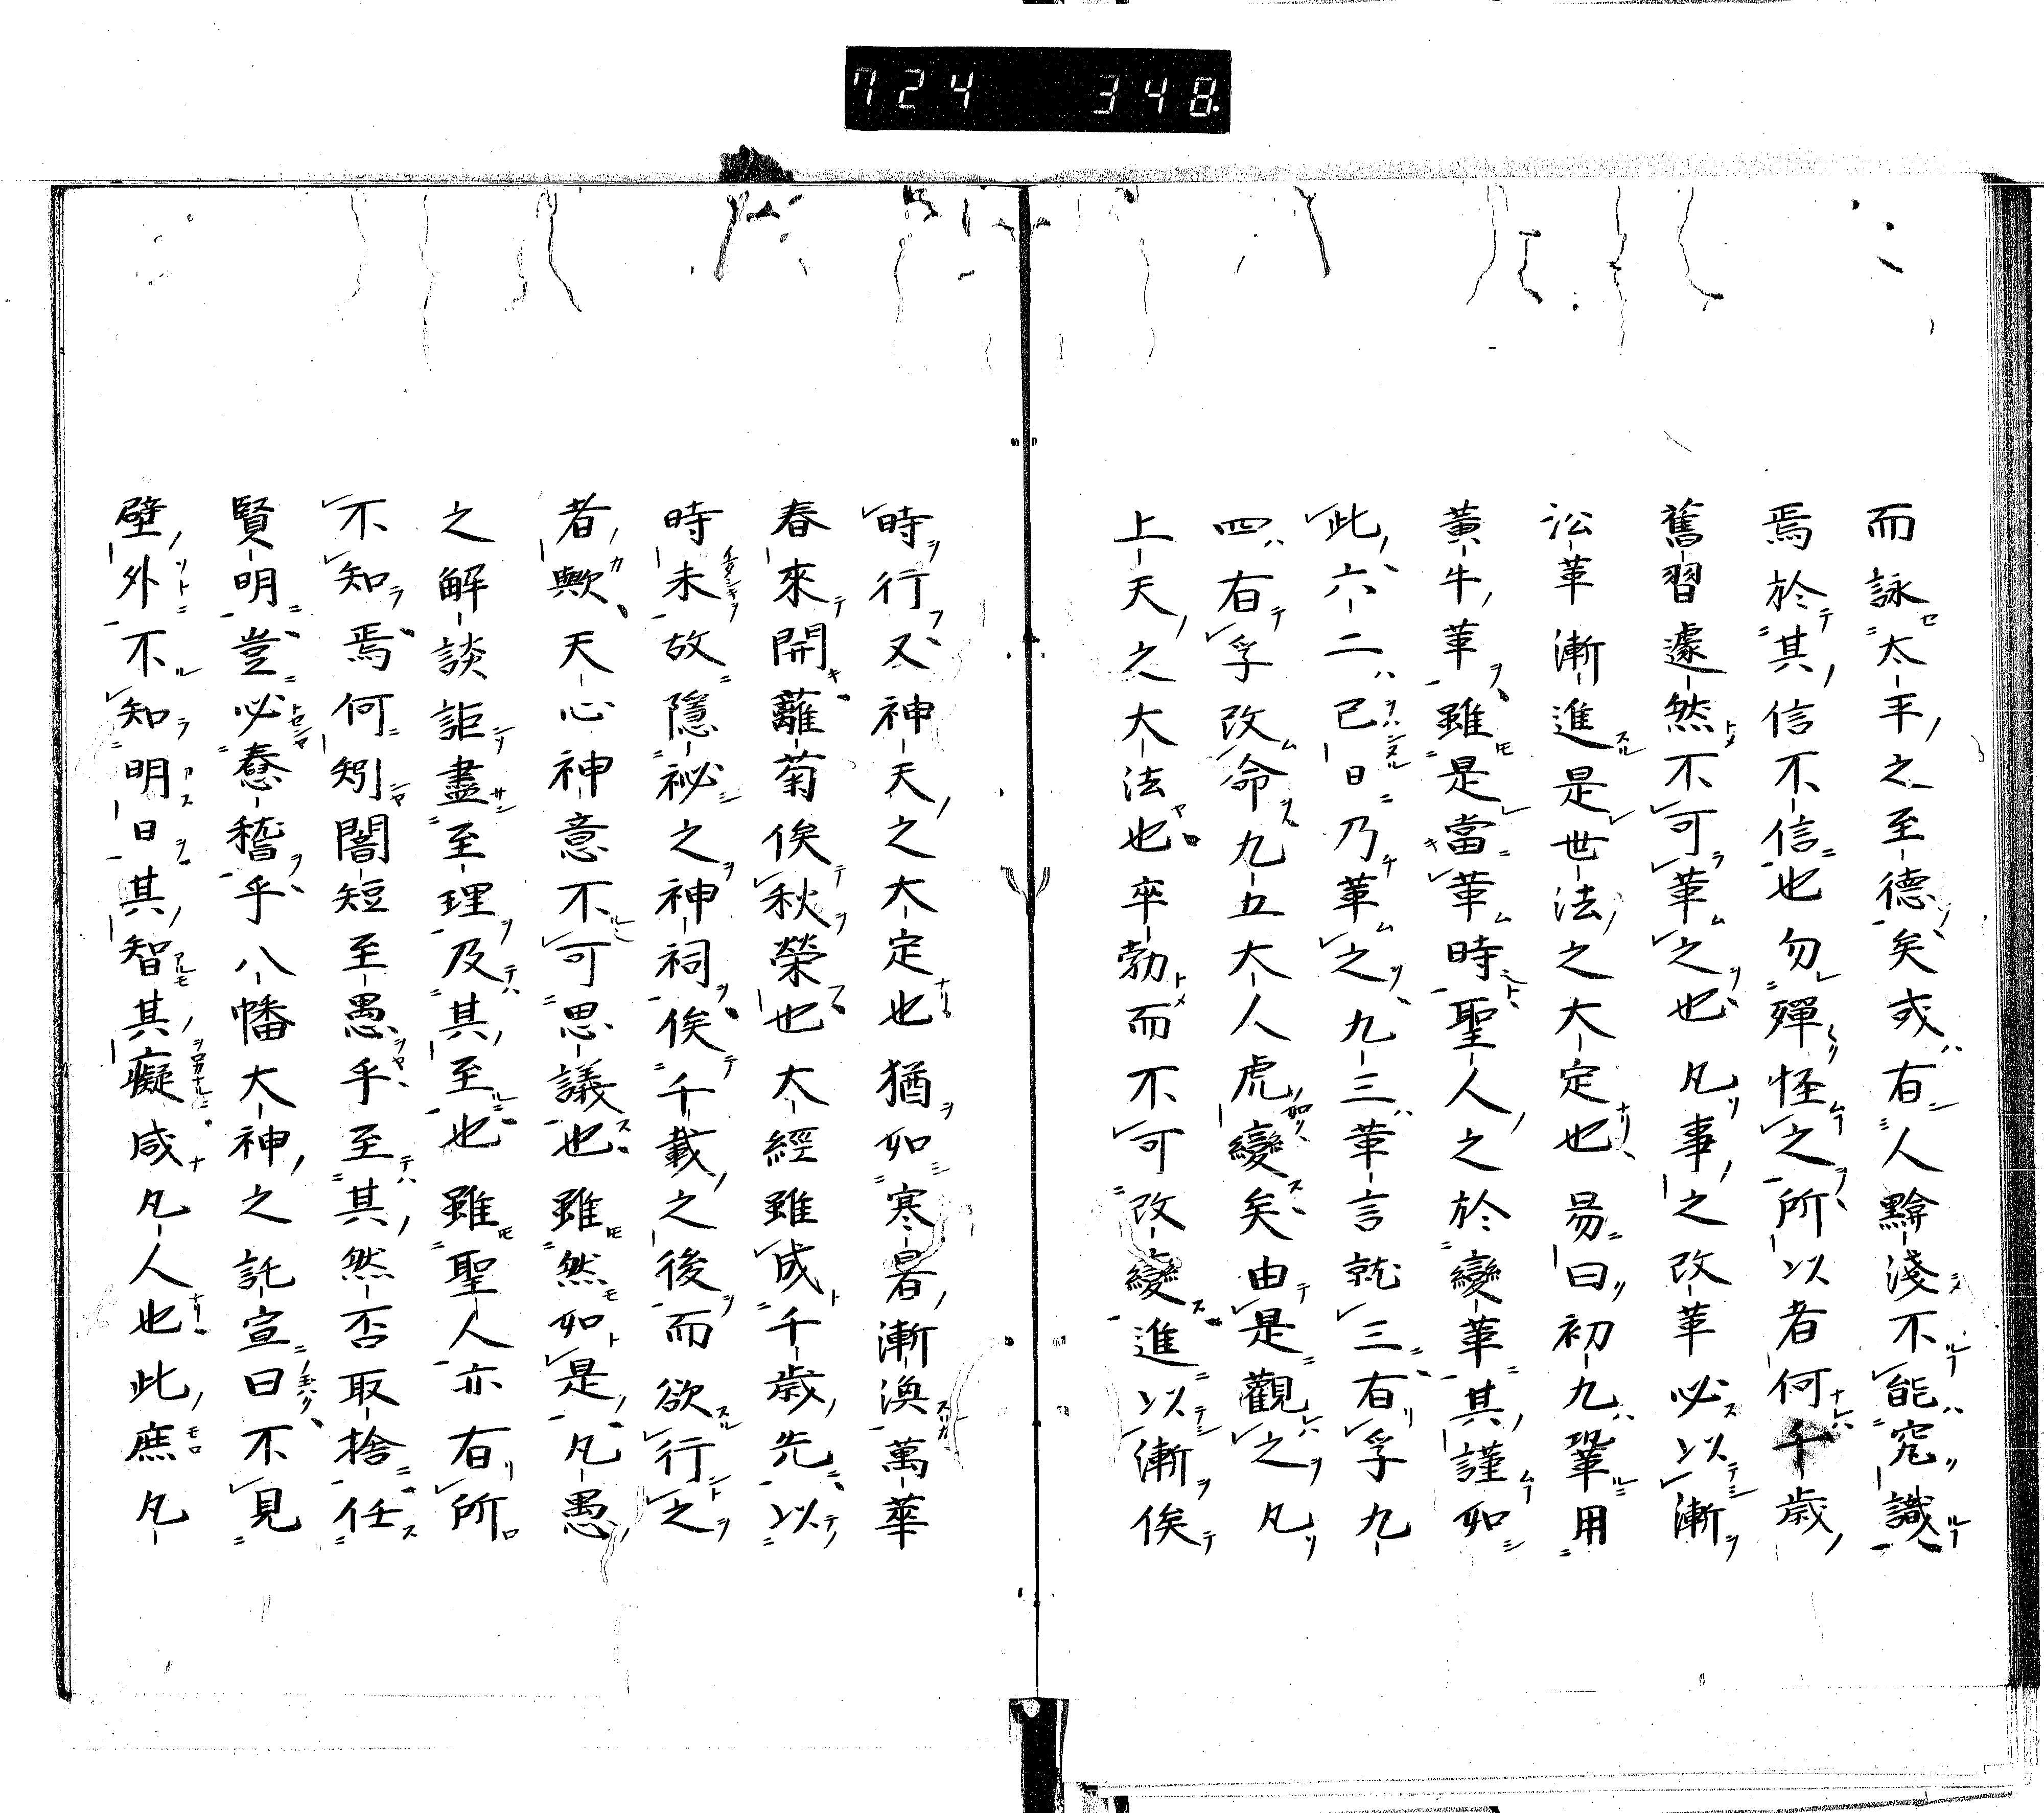 724 348
而詠太平之至德矣或有人黭淺不能究識
焉於其信不信也勿殫怪之所以者何千歲
舊習遽然不可革之也凡事之改革必以漸
訟革漸進是世法之大定也易曰初九鞏用
黃牛革雖是當革時聖人之於變革其謹如
此六二已日乃革之九三革言就三有孚九
四有孚改命九五大人虎變矣由是觀之凡
上天之大法也卒勃而不可改變進以漸俟
時行又神天之大定也猶如寒暑漸渙萬華
春來開蘺菊俟秋榮也大經雖成千歲先以
時未故隱祕之神祠俟千載之後而欲行之
者歟天心神意不可思議也雖然如是凡愚
之解談詎盡至理及其至也雖聖人亦有所
不知焉何矧闇短至愚乎至其然否取捨任
賢明豈必惷稽乎八幡大神之託宣曰不見
壁外不知明日其智其癡咸凡人也此庶凡